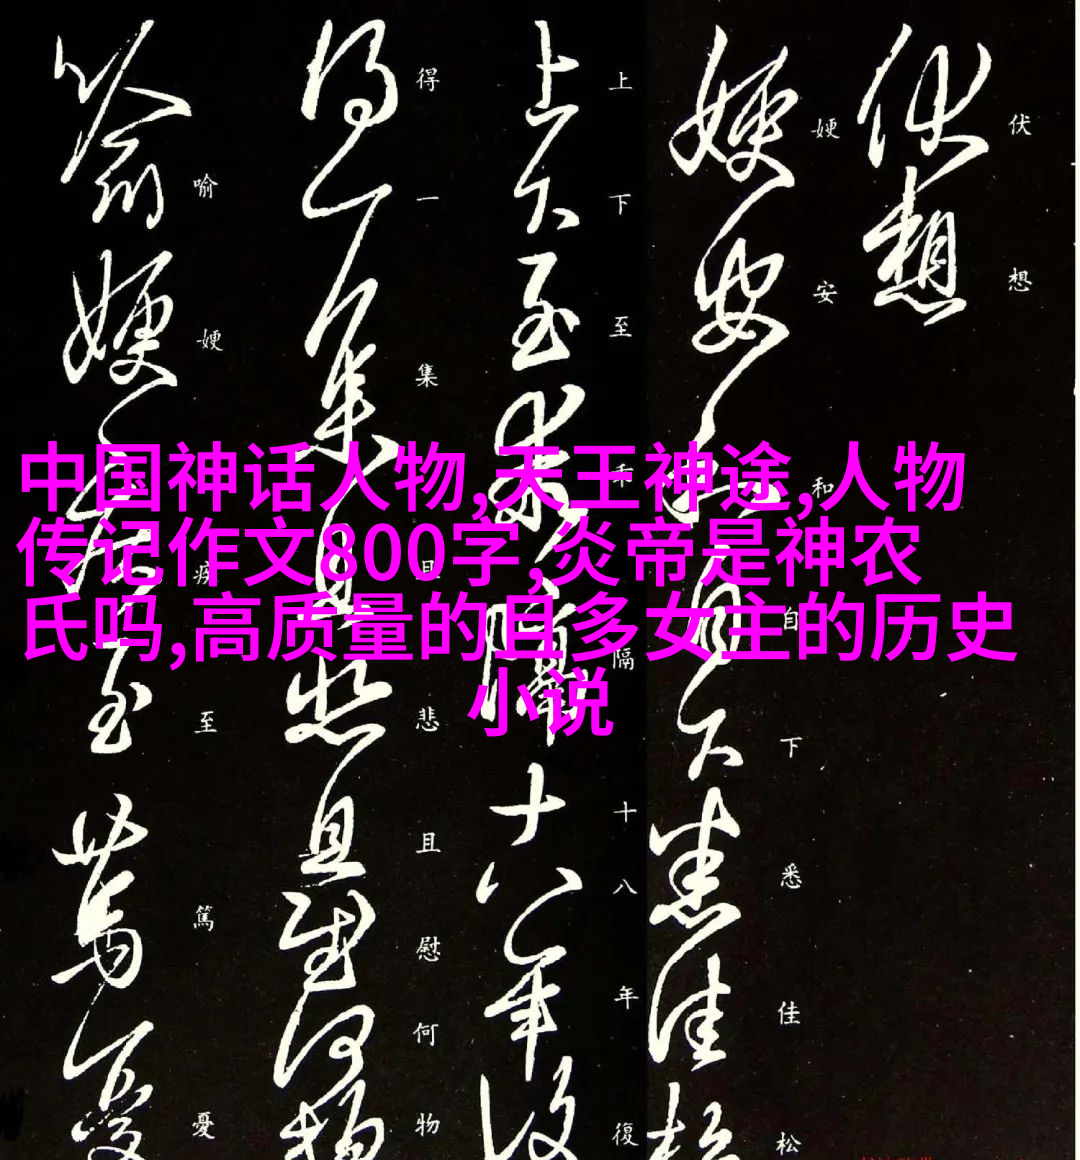 中国神话人物,天王神途,人物
传记作文800字,炎帝是神农
氏吗,高质量的且多女主的历史
小说
伏想
㛐安和自下悉佳松
上下至乖隔十八年復
得一集且悲且慰何物
喻㛐疾至篤憂